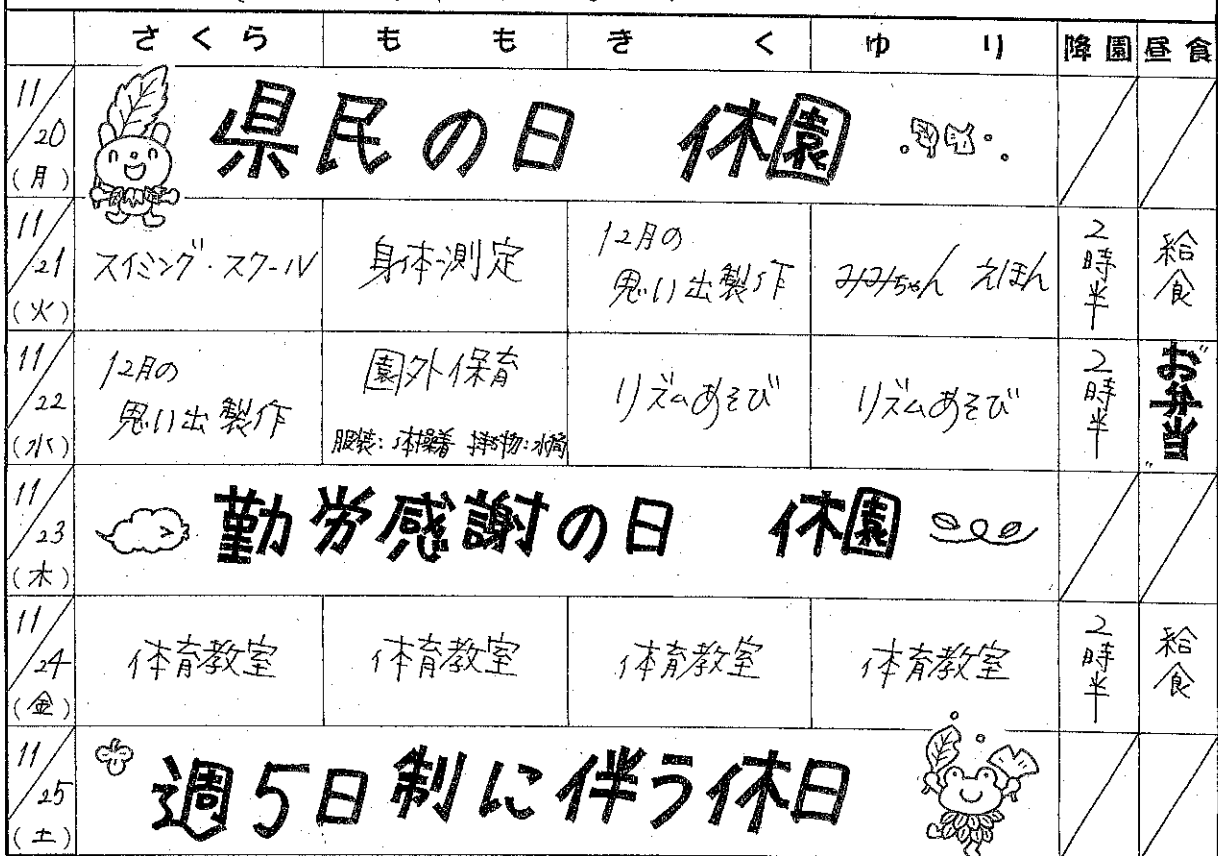 さくら もも きく ゆり 降園 昼食
11/20(月) 県民の日 休園
11/21(火) スイミング・スクール 身体測定 12月の思い出製作 みみちゃん えほん 2時半 給食
11/22(水) 12月の思い出製作 園外保育 服装:体操着 持ち物:水筒 リズムあそび リズムあそび 2時半 "お弁当"
11/23(木) 勤労感謝の日 休園
11/24(金) 体育教室 体育教室 体育教室 体育教室 2時半 給食
11/25(土) 週5日制に伴う休日